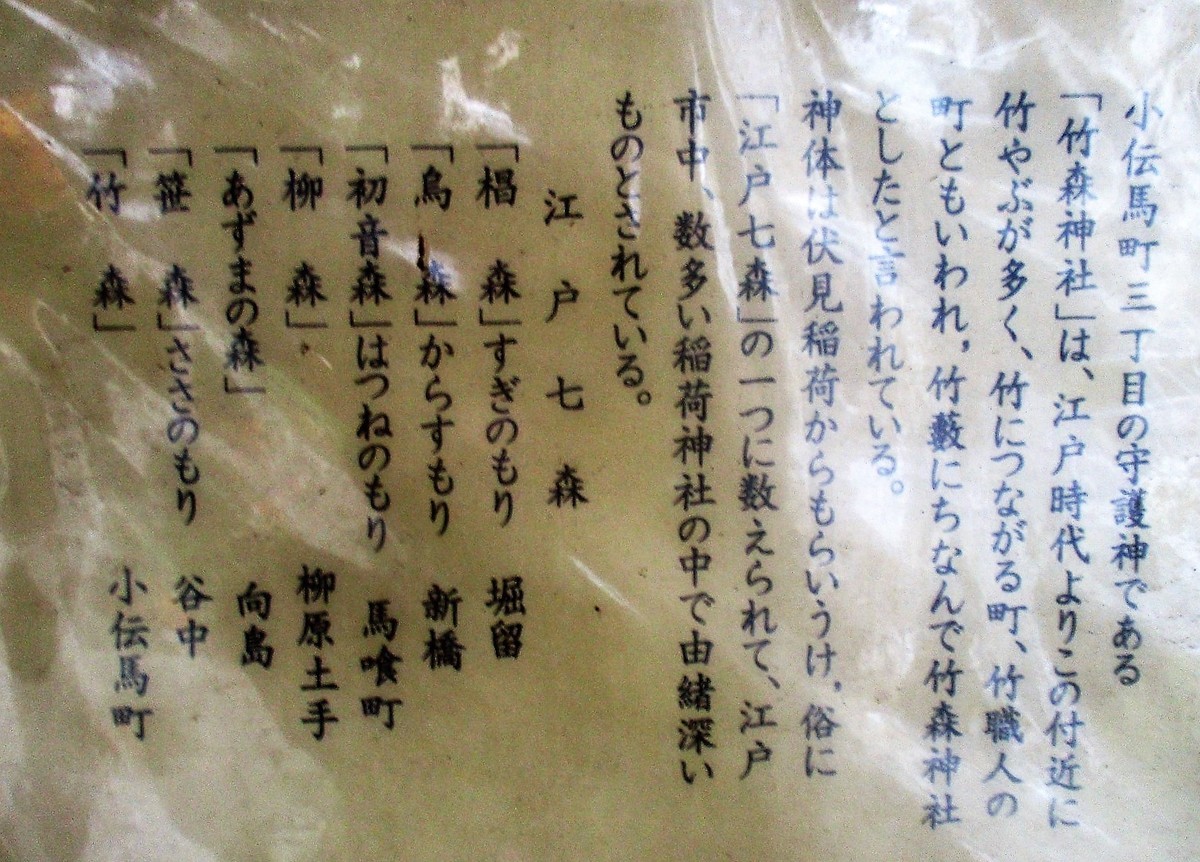 小伝馬町三丁目の守護神である
「竹森神社」は、江戸時代よりこの付近に
竹やぶが多く、竹につながる町、竹職人の
町ともいわれ，竹藪にちなんで竹森神社
としたと言われている。
神体は伏見稲荷からもらいうけ，俗に
「江戸七森」の一つに数えられて、江戸
市中、数多い稲荷神社の中で由緒深い
ものとされている。
江戸七森
「椙　森」すぎのもり　堀留
「烏　森」からすもり　新橋
「初音森」はつねのもり　馬喰町
「柳　森」　柳原土手
「あずまの森」　向島
「笹　森」ささのもり　谷中
「竹　森」　小伝馬町